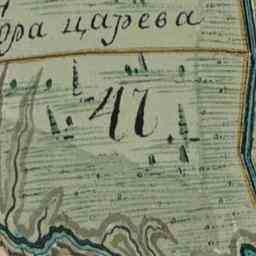 ора царева
47